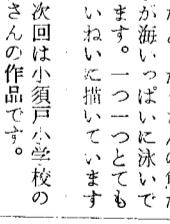 が海いっぱいに泳いで
ます。一つ一つとても
いねいに描いています
次回は小須戸小学校の
さんの作品です。